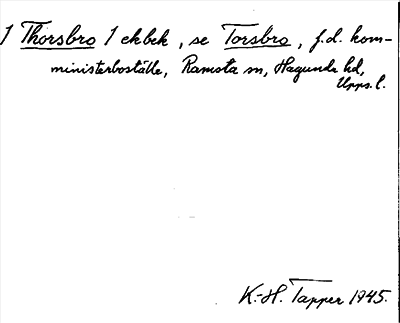 1 Thorsbro 1 ekbek, se Torsbro, f.d. kom-
ministerboställe, Ramsta sn, Hagunda hd,
Upps. l.
K.-H. Tapper 1945.